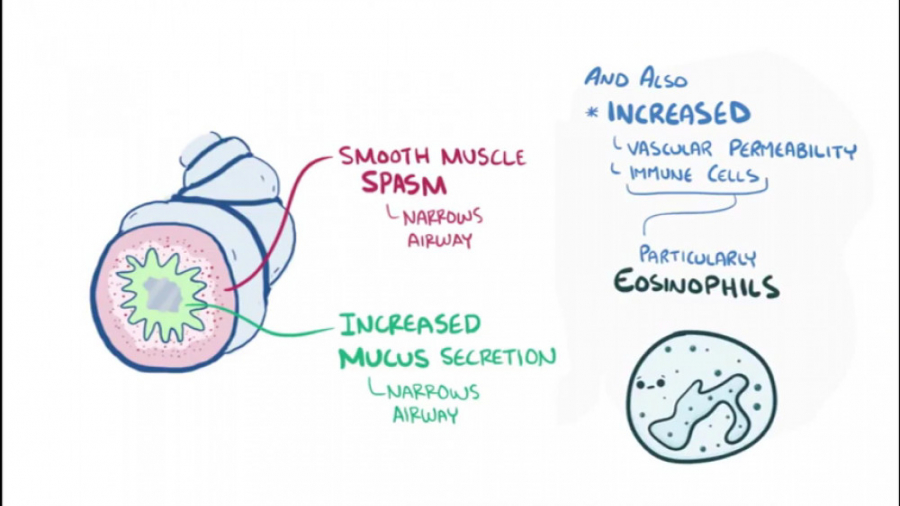 SMOOTH MUSCLE
SPASM
NARROWS
AIRWAY
INCREASED
MUCUS SECRETION
NARROWS
AIRWAY
AND ALSO
* INCREASED
VASCULAR PERMEABILITY
IMMUNE CELLS
PARTICULARLY
EOSINOPHILS